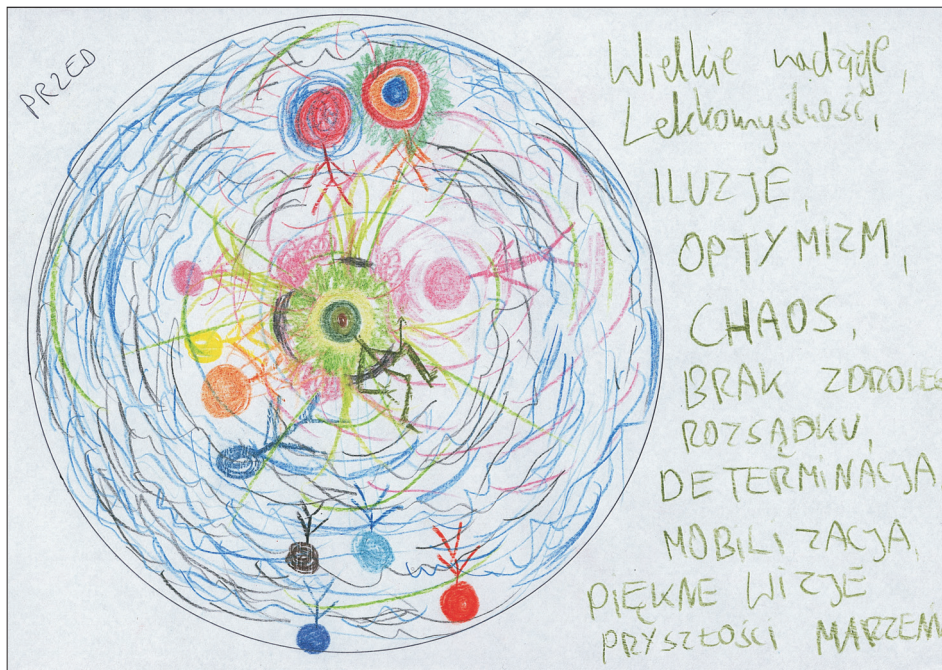 PRZED
Wielkie nadzieje,
Lekkomyślność,
ILUZJE,
OPTYMIZM,
CHAOS,
BRAK ZDROWEG
ROZSĄDKU,
DETERMINACJA
MOBILIZACJA,
PIĘKNE WIZJE
PRYSZŁOŚCI MARZEN